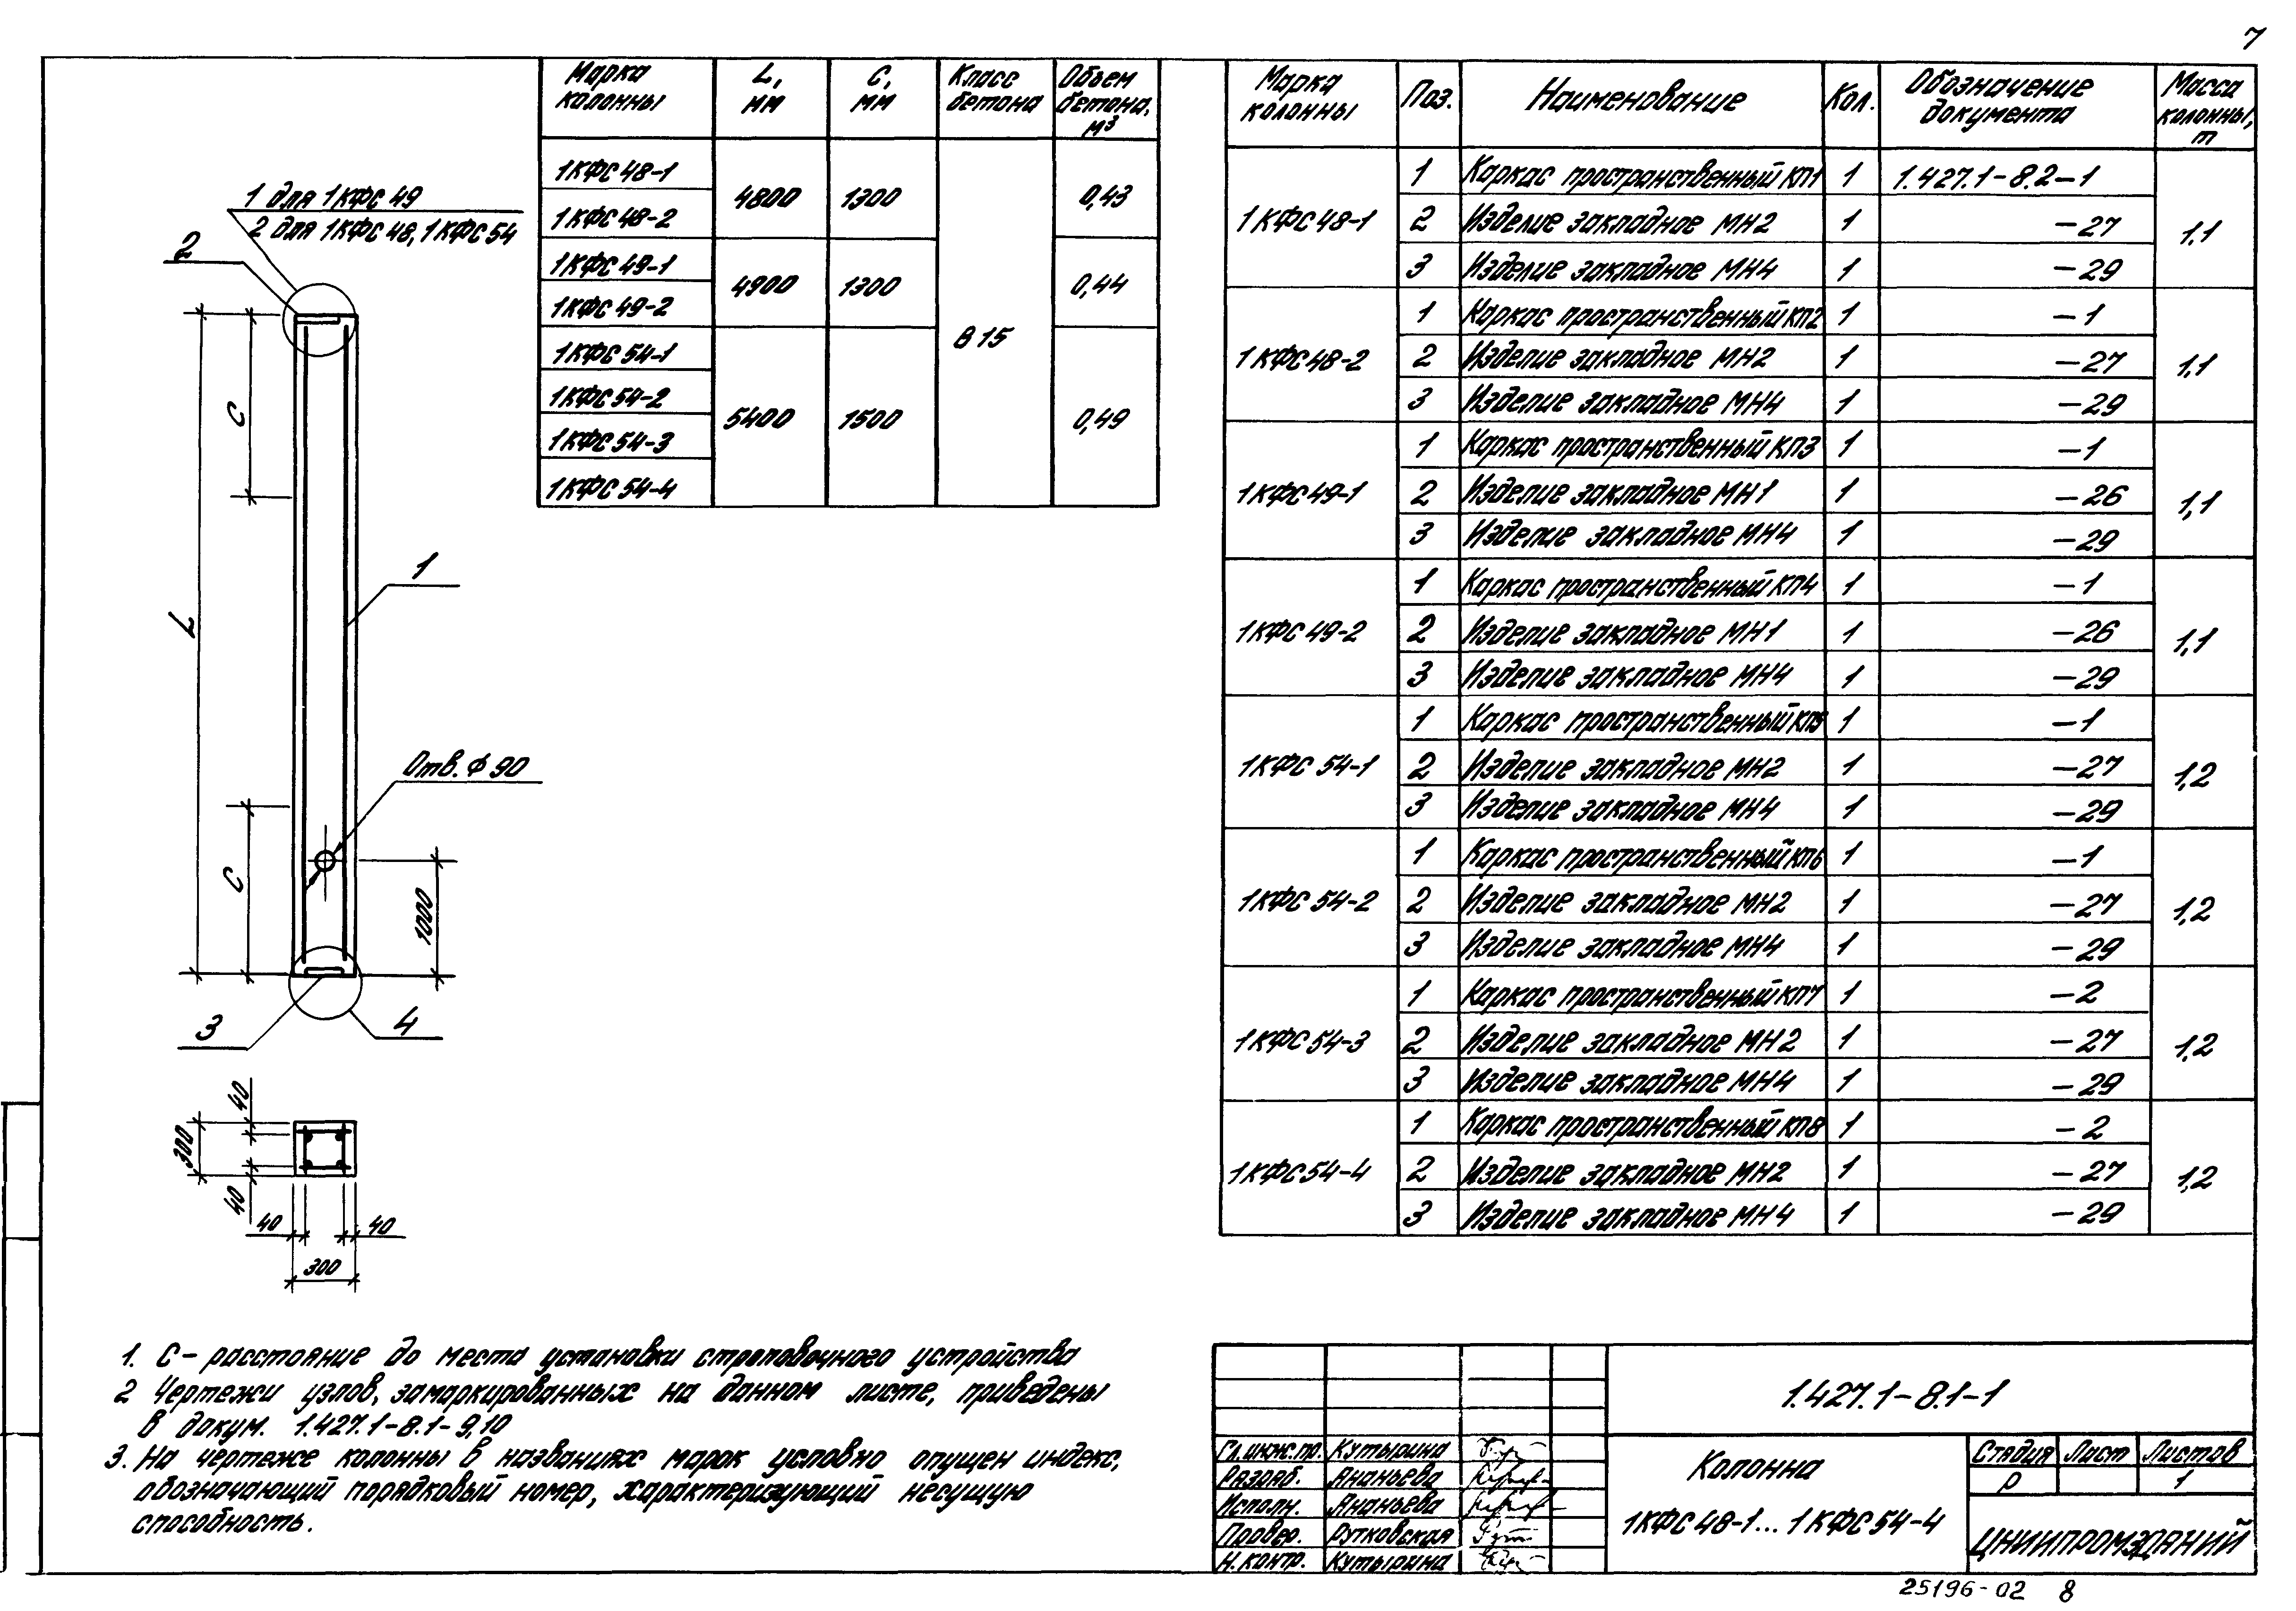 7
1 для 1КФС 49
2 для 1КФС 48, 1КФС 54
2
С
L
1
Отв. Ф 90
С
1000
3
4
40
300
40
40
40
300
Марка колонны | L, мм | С, мм | Класс бетона | Объем бетона, м³
1КФС 48-1 | 4800 | 1300 | В 15 | 0,43
1КФС 48-2
1КФС 49-1 | 4900 | 1300 | 0,44
1КФС 49-2
1КФС 54-1 | 5400 | 1500 | 0,49
1КФС 54-2
1КФС 54-3
1КФС 54-4
Марка колонны | Поз. | Наименование | Кол. | Обозначение документа | Масса колонны, т
1КФС 48-1 | 1 | Каркас пространственный КП1 | 1 | 1.427.1-8.2-1 | 1.1
2 | Изделие закладное МН2 | 1 | -27
3 | Изделие закладное МН4 | 1 | -29
1КФС 48-2 | 1 | Каркас пространственный КП2 | 1 | -1 | 1,1
2 | Изделие закладное МН2 | 1 | -27
3 | Изделие закладное МН4 | 1 | -29
1КФС 49-1 | 1 | Каркас пространственный КП3 | 1 | -1 | 1,1
2 | Изделие закладное МН1 | 1 | -26
3 | Изделие закладное МН4 | 1 | -29
1КФС 49-2 | 1 | Каркас пространственный КП4 | 1 | -1 | 1,1
2 | Изделие закладное МН1 | 1 | -26
3 | Изделие закладное МН4 | 1 | -29
1КФС 54-1 | 1 | Каркас пространственный КП5 | 1 | -1 | 1,2
2 | Изделие закладное МН2 | 1 | -27
3 | Изделие закладное МН4 | 1 | -29
1КФС 54-2 | 1 | Каркас пространственный КП6 | 1 | -1 | 1,2
2 | Изделие закладное МН2 | 1 | -27
3 | Изделие закладное МН4 | 1 | -29
1КФС 54-3 | 1 | Каркас пространственный КП7 | 1 | -2 | 1,2
2 | Изделие закладное МН2 | 1 | -27
3 | Изделие закладное МН4 | 1 | -29
1КФС 54-4 | 1 | Каркас пространственный КП8 | 1 | -2 | 1,2
2 | Изделие закладное МН2 | 1 | -27
3 | Изделие закладное МН4 | 1 | -29
1. С - расстояние до места установки строповочного устройства
2 Чертежи узлов, замаркированных на данном листе, приведены
в докум. 1.427.1-8.1-9,10
3. На чертеже колонны в названиях марок условно опущен индекс,
обозначающий порядковый номер, характеризующий несущую
способность.
Гл.инж.пр. Кутырина
Разраб. Ананьева
Исполн. Ананьева
Провер. Рутковская
Н.контр. Кутырина
1.427.1-8.1-1
Колонна
1КФС 48-1... 1КФС 54-4
Стадия Лист Листов
Р 1
ЦНИИПРОМЗДАНИЙ
25196-02 8